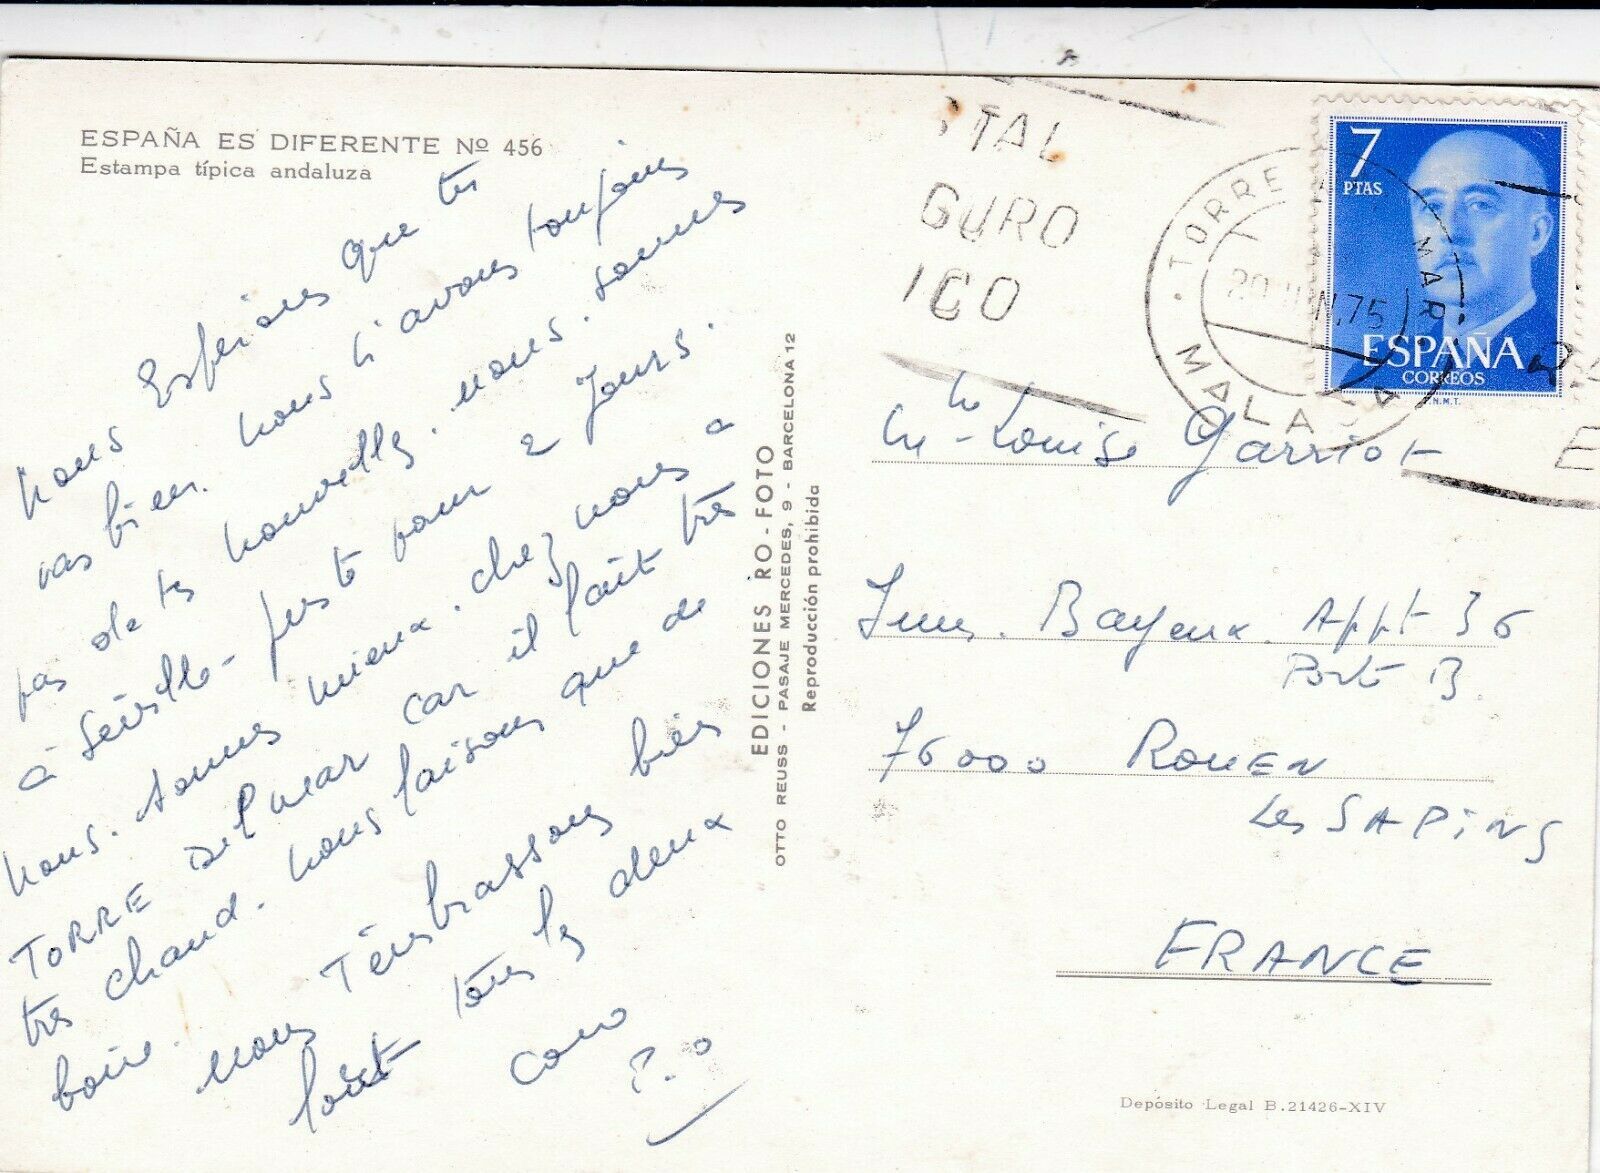 ESPAÑA ES DIFERENTE Nº 456
Estampa típica andaluza
nous Espérons que tu
vas bien. nous n'avons toujours
pas de tes nouvelles. nous. sommes
à Séville - juste pour 2 jours.
nous. sommes mieux. chez nous à
TORRE DEL mar car il fait très
très chaud. nous faisons que de
boire. nous T'embrassons bien
fort tous les deux
EDICIONES RO - FOTO
OTTO REUSS - PASAJE MERCEDES, 9 - BARCELONA 12
Reproducción prohibida
TAL
GURO
ICO
TORRE MAR
MALAGA
20 JUN. 75
7
PTAS
ESPAÑA
CORREOS
F.N.M.T.
E
Louise Garriot
Imm. Bayeux. Appt 36
Port B.
76000 ROUEN
Les SAPINS
FRANCE
Depósito Legal B. 21426-XIV